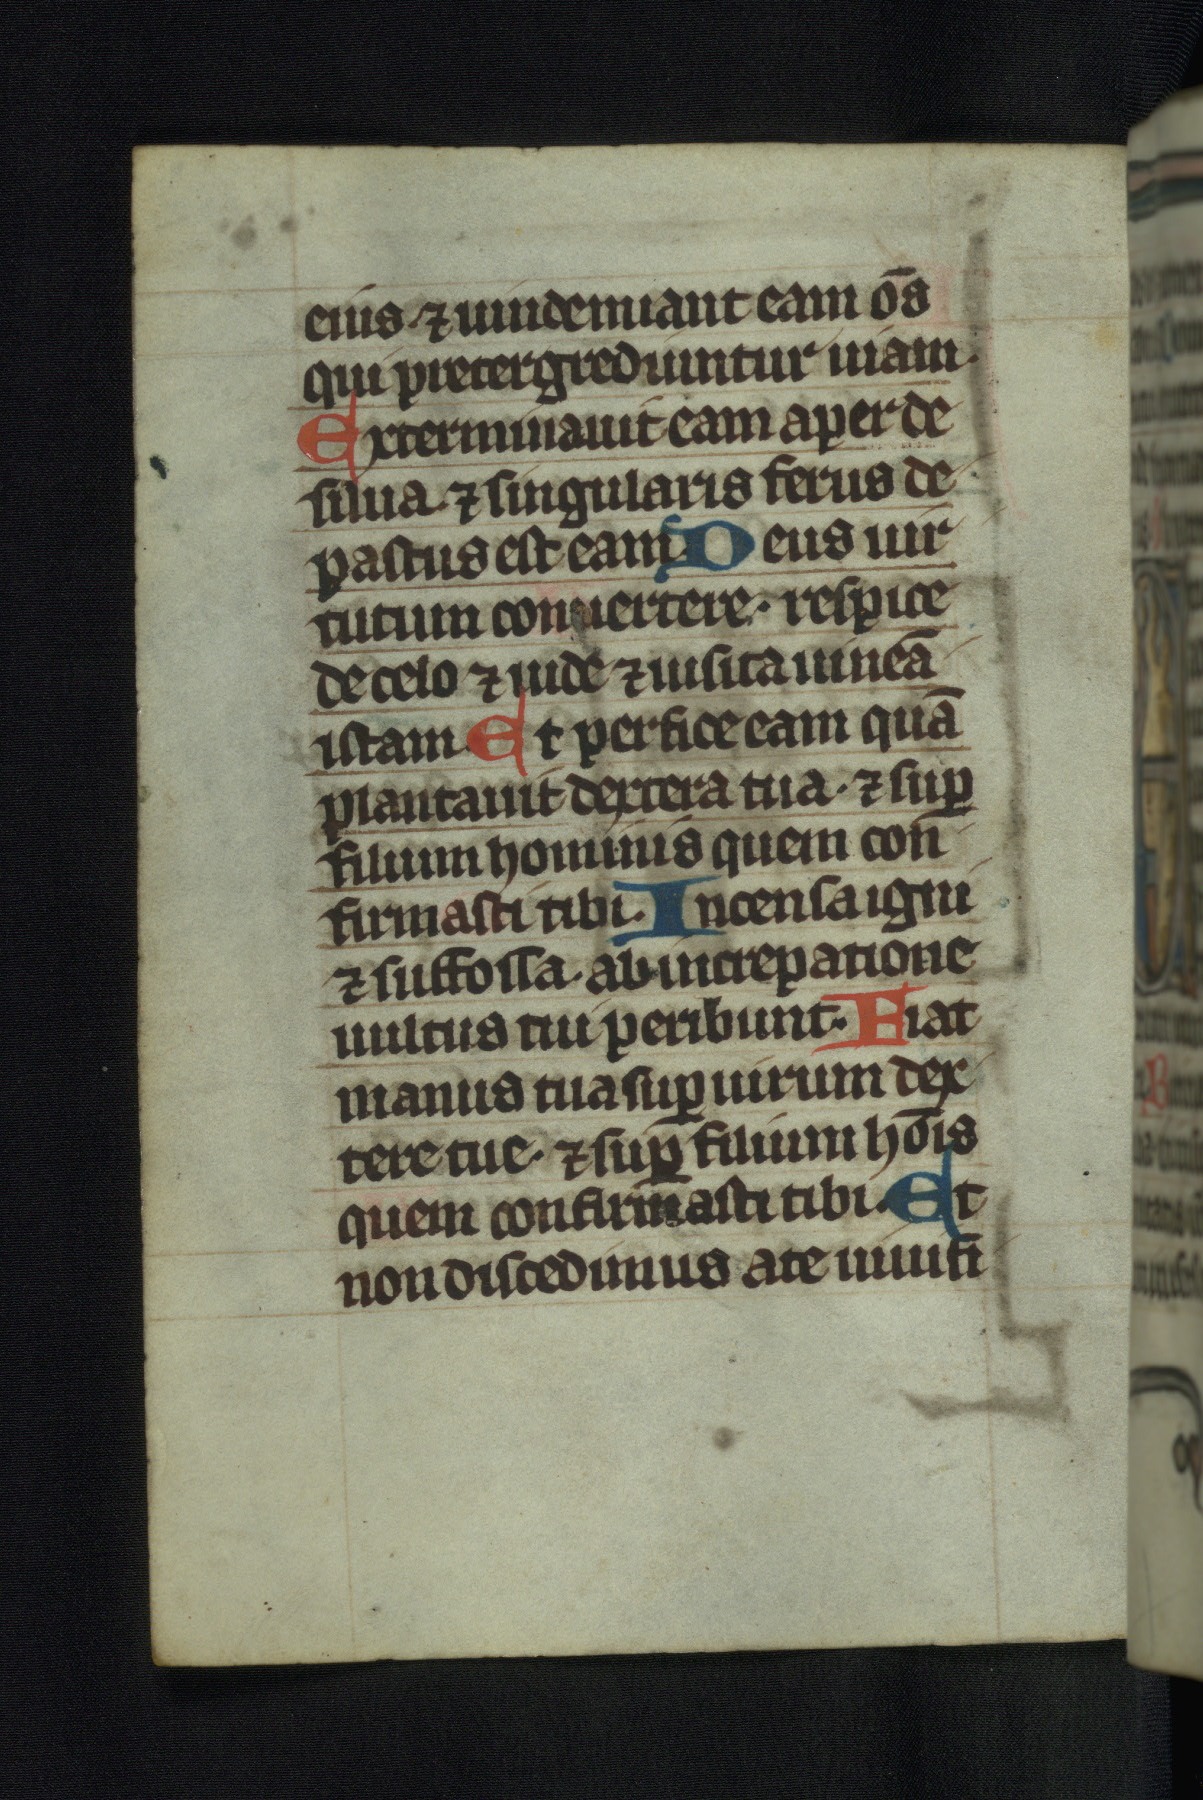 eius ⁊ uindemiant eam om̄s
qui pretergrediuntur uiam.
Exterminauit eam aper de
silua. ⁊ singularis ferus de
pastus est eam. Deus uir
tutum conuertere. respice
de celo ⁊ uide ⁊ uisita uineā
istam. Et perfice eam quā
plantauit dextera tua. ⁊ suꝑ
filium hominis quem con
firmasti tibi. Incensa igni
⁊ suffossa. ab increpatione
uultus tui peribunt. Fiat
manus tua suꝑ uirum dex
tere tue. ⁊ suꝑ filium hōis
quem confirmasti tibi. Et
non discedimus a te uiuifi